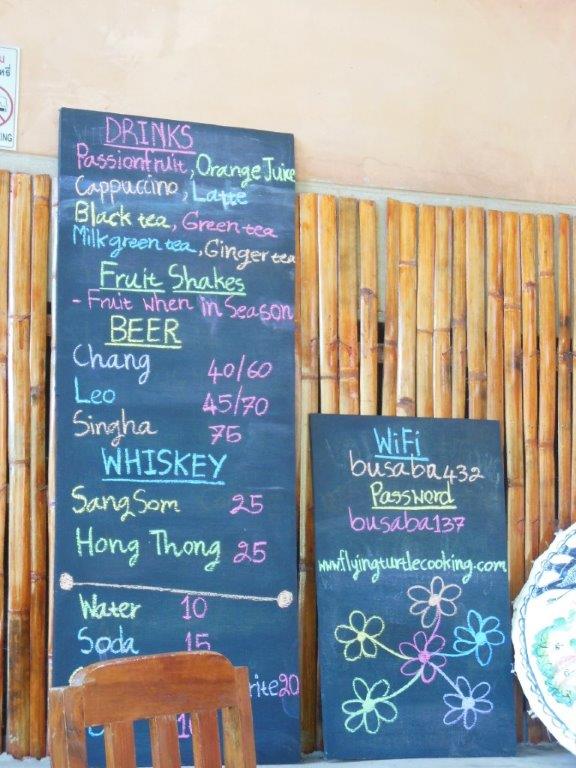 DRINKS
Passionfruit, Orange Juice
Cappuccino, Latte
Black tea, Green tea
Milk green tea, Ginger tea
Fruit Shakes
- Fruit when in Season
BEER
Chang 40/60
Leo 45/70
Singha 75
WHISKEY
SangSom 25
Hong Thong 25
Water 10
Soda 15
20
WiFi
busaba432
Password
busaba137
www.flyingturtlecooking.com